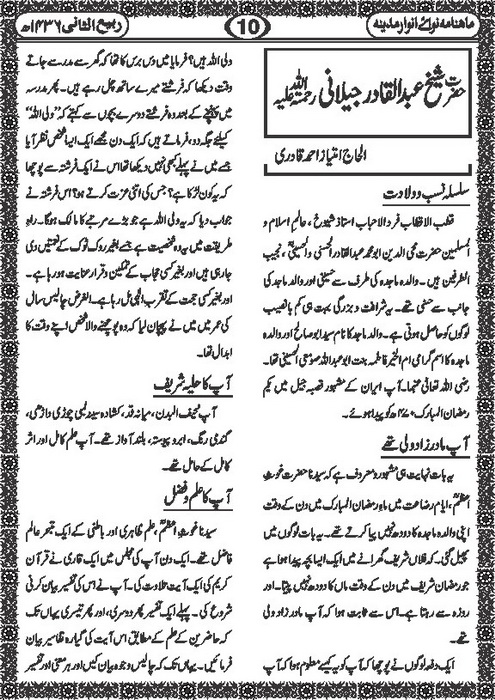 ماہنامہ نوائے انوار مدینہ
10
ربیع الثانی ۱۴۳۶ھ
حضرت شیخ عبدالقادر جیلانی رحمۃ اللہ علیہ
الحاج امتیاز احمد قادری
سلسلہ نسب و ولادت
قطب الاقطاب فرد الاحباب استاذ شیوخ، عالم اسلام و
المسلمین حضرت محی الدین ابو محمد عبدالقادر الحسنی والحسینیؓ نجیب
الطرفین ہیں۔ والدہ ماجدہ کی طرف سے حسینی اور والد ماجد کی
جانب سے حسنی تھے۔ یہ شرافت و بزرگی بہت ہی کم با نصیب
لوگوں کو حاصل ہوتی ہے۔ والد ماجد کا نام سید ابو صالح اور والدہ
ماجدہ کا اسم گرامی ام الخیر فاطمہ بنت ابو عبداللہ صومعی الحسینی تھا۔
رضی اللہ تعالیٰ عنہما۔ آپ ایران کے مشہور قصبہ جیل میں یکم
رمضان المبارک ۴۷۰ھ کو پیدا ہوئے۔
آپ مادر زاد ولی تھے
یہ بات نہایت ہی مشہور و معروف ہے کہ سیدنا حضرت غوث
اعظمؓ، ایام رضاعت میں ماہ رمضان المبارک میں دن کے وقت
اپنی والدہ ماجدہ کا دودھ نہیں پیا کرتے تھے۔ یہ بات لوگوں میں
پھیل گئی۔ کہ فلاں شریف گھرانے میں ایک ایسا بچہ پیدا ہوا ہے
جو رمضان شریف میں دن کے وقت ماں کا دودھ نہیں پیتا۔ اور
روزہ سے رہتا ہے۔ اس سے ثابت ہوا کہ آپ مادر زاد ولی
تھے۔
ایک دفعہ لوگوں نے پوچھا کہ آپ کو یہ کیسے معلوم ہوا کہ آپ
ولی اللہ ہیں؟ فرمایا میں دس برس کا تھا کہ گھر سے مدرسے جاتے
وقت دیکھا کہ فرشتے میرے ساتھ چل رہے ہیں۔ پھر مدرسہ
میں پہنچنے کے بعد وہ فرشتے دوسرے بچوں سے کہتے کہ ”ولی اللہ“
کیلئے جگہ دو، فرماتے ہیں کہ ایک دن مجھے ایک ایسا شخص نظر آیا
جسے میں نے پہلے کبھی نہیں دیکھا تھا اس نے ایک فرشتہ سے پوچھا
کہ یہ کون لڑکا ہے؟ جس کی اتنی عزت کرتے ہو؟ اس فرشتہ نے
جواب دیا کہ یہ ولی اللہ ہے جو بڑے مرتبے کا مالک ہوگا۔ راہ
طریقت میں یہ وہ شخصیت ہے جسے بغیر روک ٹوک کے نعمتیں دی
جا رہی ہیں اور بغیر کسی حجاب کے تمکین و قرار عنایت ہو رہا ہے۔
اور بغیر کسی حجت کے تقرب الٰہی مل رہا ہے۔ الغرض چالیس سال
کی عمر میں میں نے پہچان لیا کہ وہ پوچھنے والا شخص اپنے وقت کا
ابدال تھا۔
آپ کا حلیہ شریف
آپ نحیف البدن، میانہ قد، کشادہ سینہ، لمبی چوڑی داڑھی،
گندمی رنگ، ابرو پیوستہ، بلند آواز تھے۔ آپ علم کامل اور اثر
کامل کے حامل تھے۔
آپ کا علم و فضل
سیدنا غوث اعظمؓ، علم ظاہری اور باطنی کے ایک متبحر عالم
فاضل تھے۔ ایک دن آپ کی مجلس میں ایک قاری نے قرآن
کریم کی ایک آیت تلاوت کی۔ آپ نے اس کی تفسیر بیان کرنی
شروع کی۔ پہلے ایک تفسیر پھر دوسری، اور پھر تیسری یہاں تک
کہ حاضرین کے علم کے مطابق اس آیت کی گیارہ تفاسیر بیان
فرمائیں۔ یہاں تک کہ چالیس وجوہ بیان کیں اور ہر معنی اور تفسیر